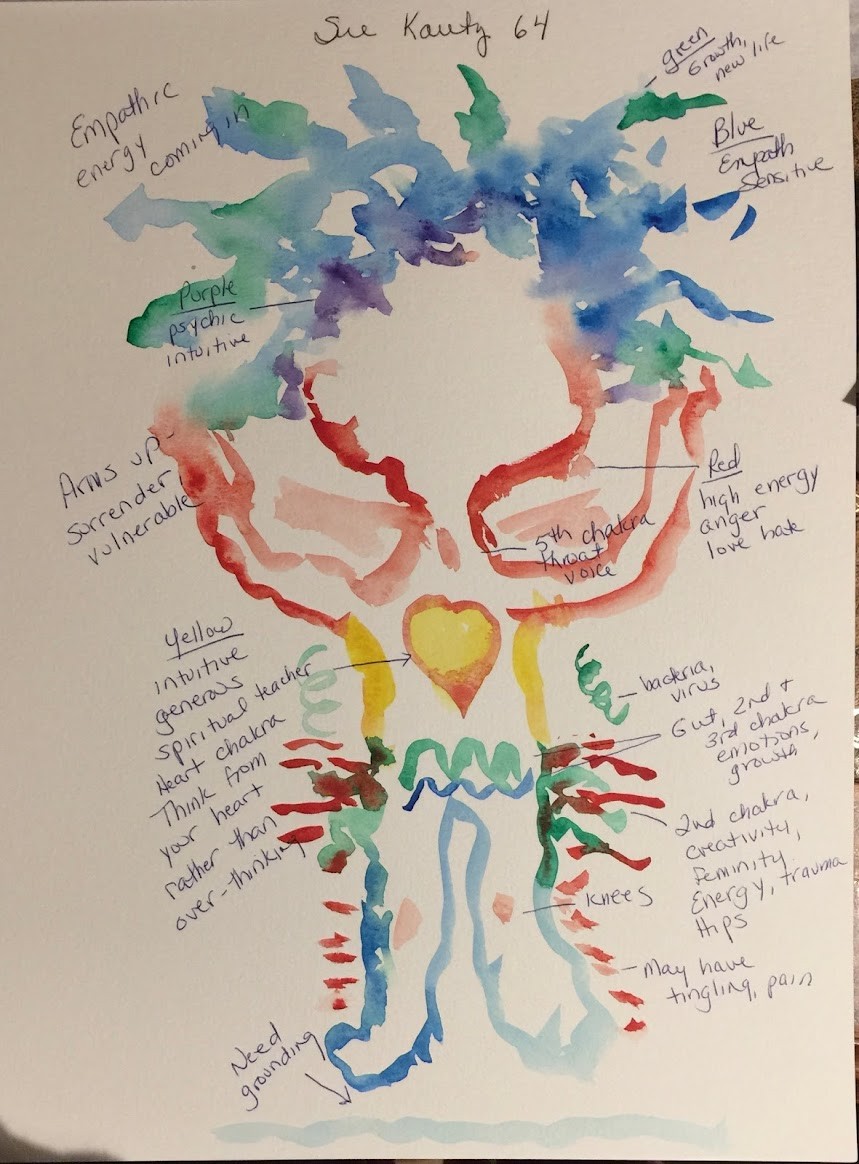 Sue Kautz 64
Empathic
energy
coming in
green
Growth,
new life
Blue
Empath
Sensitive
Purple
psychic
intuitive
Arms up-
surrender
vulnerable
Red
high energy
anger
love hate
5th chakra
throat
voice
Yellow
intuitive
generous
spiritual teacher
Heart chakra
Think from
your heart
rather than
over-thinking
bacteria,
virus
Gut, 2nd +
3rd chakra
emotions,
growth
2nd chakra,
creativity,
feminity
Energy, trauma
Hips
knees
May have
tingling, pain
Need
grounding